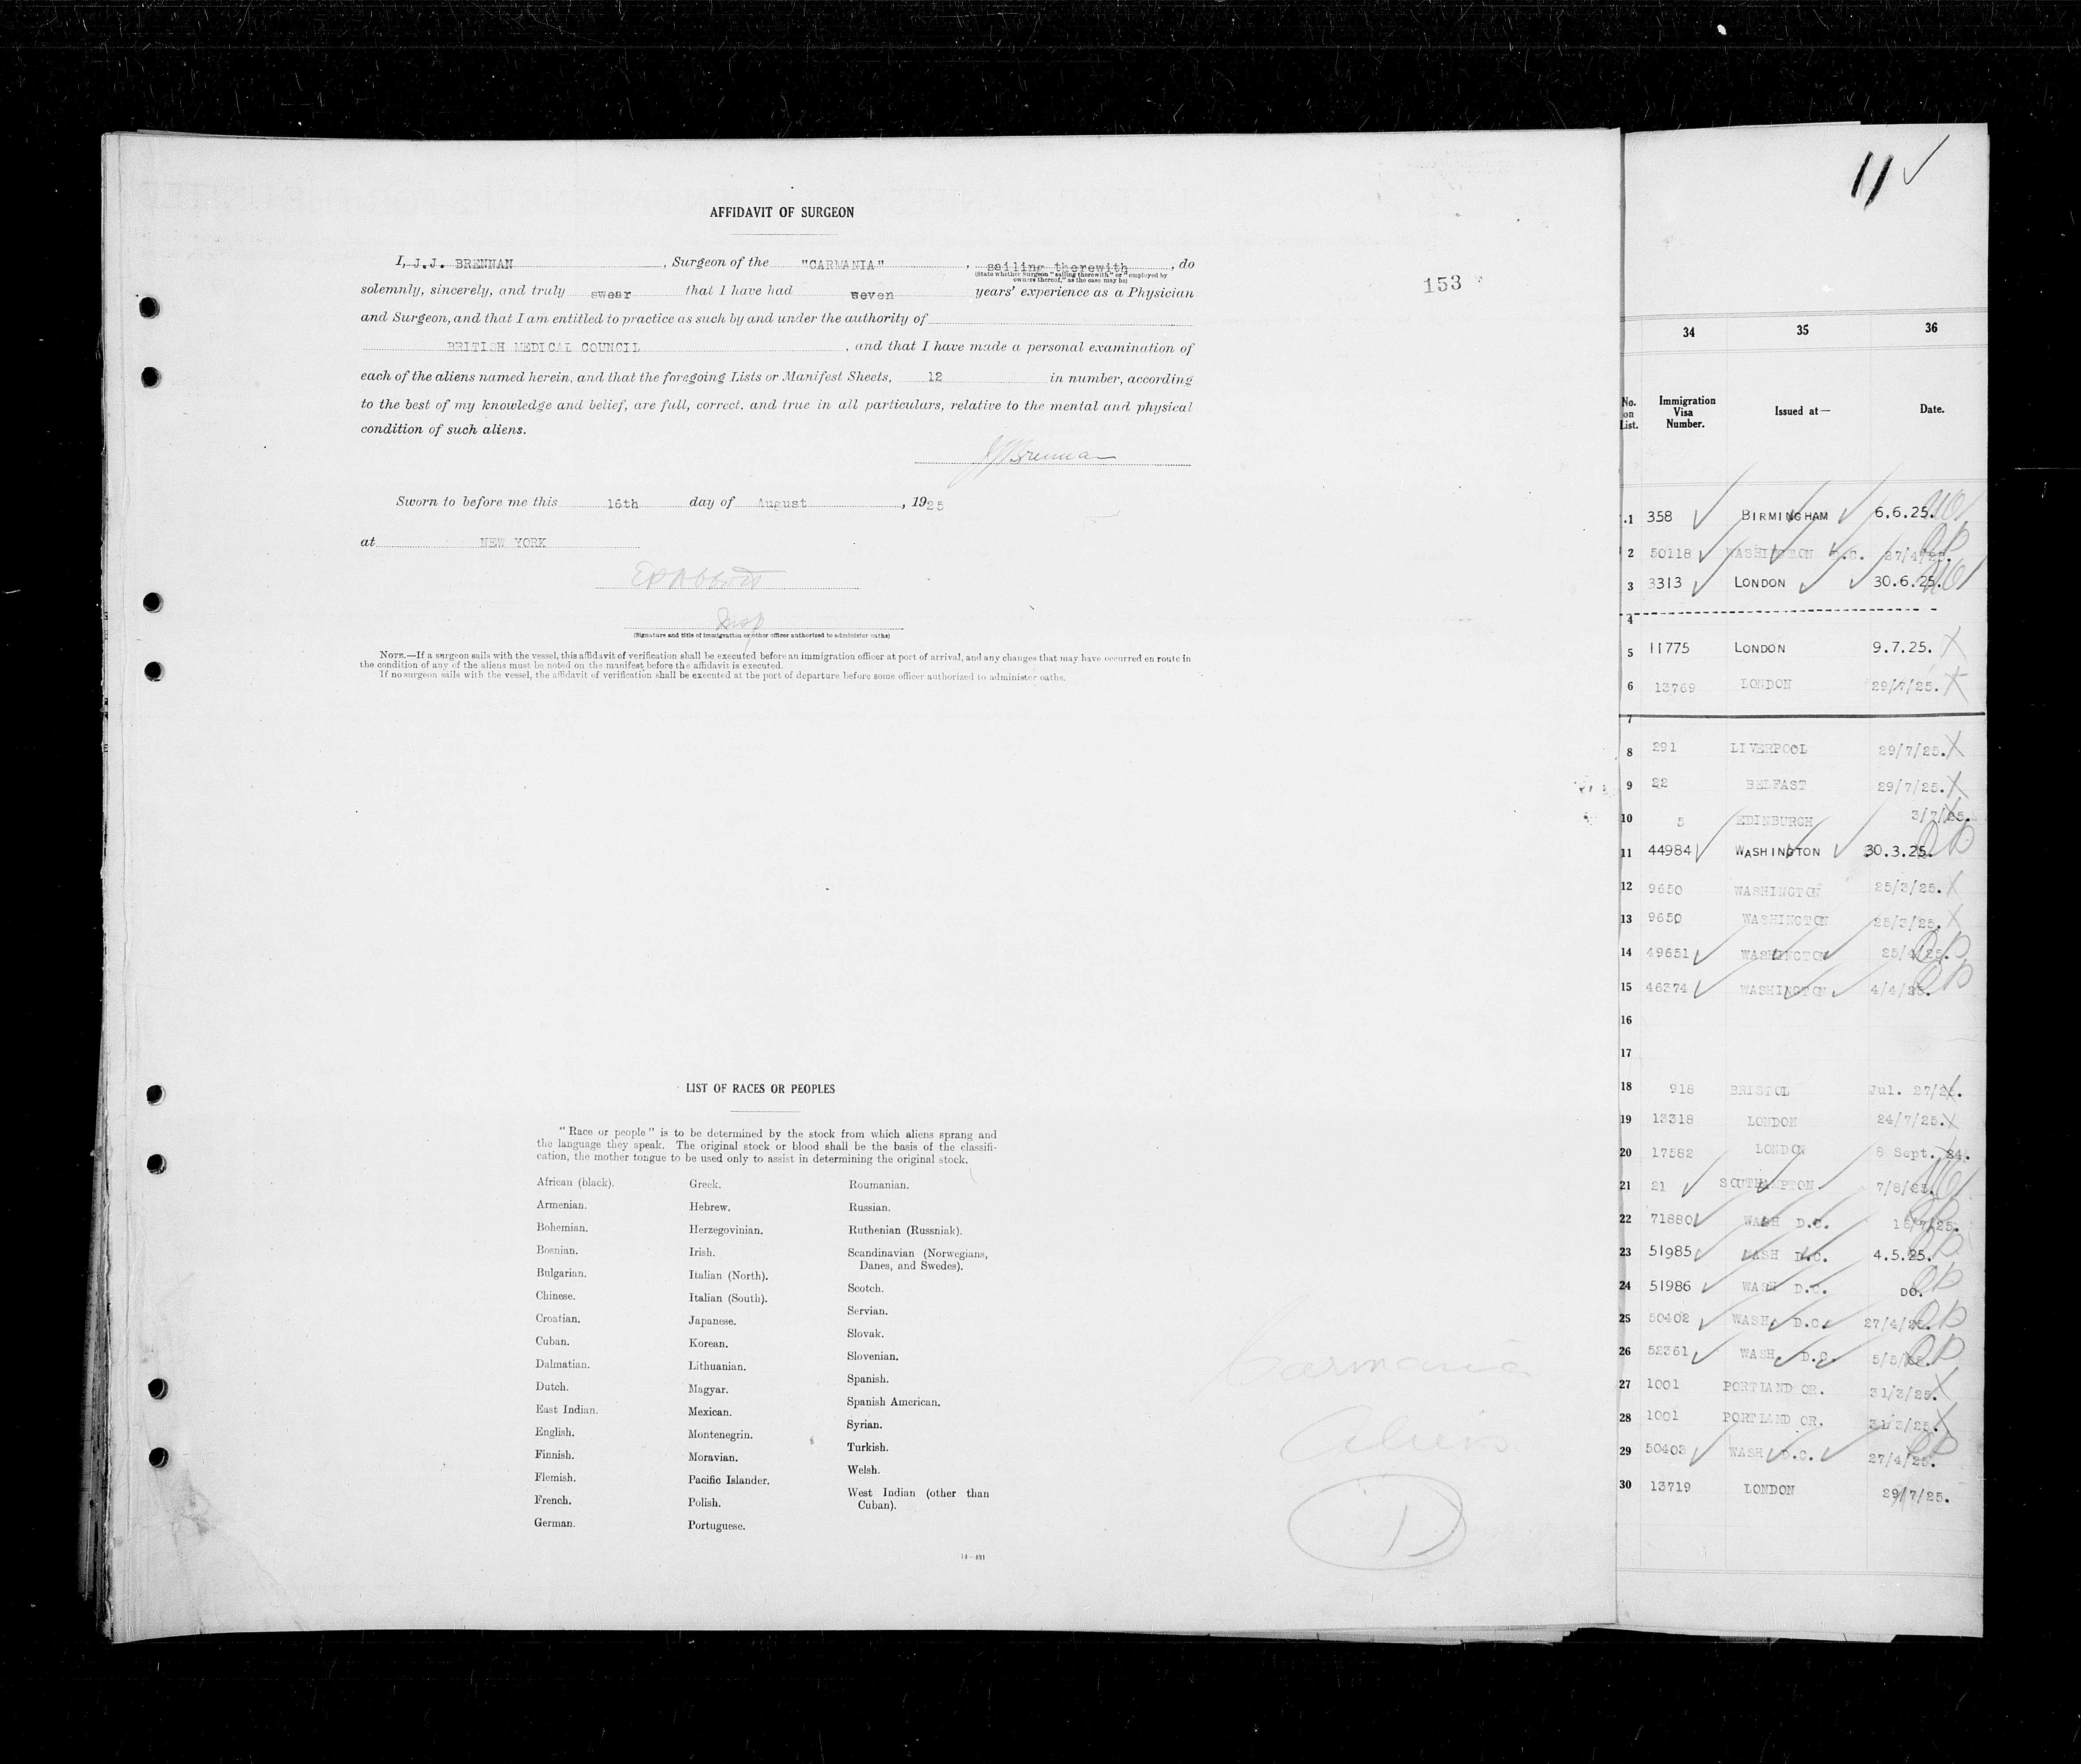 AFFIDAVIT OF SURGEON
I, J.J. BRENNAN, Surgeon of the "CARMANIA", sailing therewith, do
(State whether Surgeon "sailing therewith" or "employed by
owners thereof," as the case may be)
solemnly, sincerely, and truly swear that I have had seven years' experience as a Physician
and Surgeon, and that I am entitled to practice as such by and under the authority of
BRITISH MEDICAL COUNCIL, and that I have made a personal examination of
each of the aliens named herein, and that the foregoing Lists or Manifest Sheets, 12 in number, according
to the best of my knowledge and belief, are full, correct, and true in all particulars, relative to the mental and physical
condition of such aliens.
JJBrennan
Sworn to before me this 16th day of August, 1925
at NEW YORK
Insp
(Signature and title of immigration or other officer authorized to administer oaths)
NOTE.—If a surgeon sails with the vessel, this affidavit of verification shall be executed before an immigration officer at port of arrival, and any changes that may have occurred en route in
the condition of any of the aliens must be noted on the manifest before the affidavit is executed.
If no surgeon sails with the vessel, the affidavit of verification shall be executed at the port of departure before some officer authorized to administer oaths.
153
LIST OF RACES OR PEOPLES
"Race or people" is to be determined by the stock from which aliens sprang and
the language they speak. The original stock or blood shall be the basis of the classifi-
cation, the mother tongue to be used only to assist in determining the original stock.
African (black).
Armenian.
Bohemian.
Bosnian.
Bulgarian.
Chinese.
Croatian.
Cuban.
Dalmatian.
Dutch.
East Indian.
English.
Finnish.
Flemish.
French.
German.
Greek.
Hebrew.
Herzegovinian.
Irish.
Italian (North).
Italian (South).
Japanese.
Korean.
Lithuanian.
Magyar.
Mexican.
Montenegrin.
Moravian.
Pacific Islander.
Polish.
Portuguese.
Roumanian.
Russian.
Ruthenian (Russniak).
Scandinavian (Norwegians,
Danes, and Swedes).
Scotch.
Servian.
Slovak.
Slovenian.
Spanish.
Spanish American.
Syrian.
Turkish.
Welsh.
West Indian (other than
Cuban).
Carmania
Aliens
1
11
34 35 36
No. on List. Immigration Visa Number. Issued at— Date.
1 358 BIRMINGHAM 6.6.25.
2 50118 WASHINGTON D.C. 27/4/25.
3 3313 LONDON 30.6.25.
4
5 11775 LONDON 9.7.25.
6 13769 LONDON 29/7/25.
7
8 291 LIVERPOOL 29/7/25.
9 22 BELFAST 29/7/25.
10 5 EDINBURGH 3/7/25.
11 44984 WASHINGTON 30.3.25.
12 9650 WASHINGTON 25/3/25.
13 9650 WASHINGTON 25/3/25.
14 49651 WASHINGTON 25/4/25.
15 46374 WASHINGTON 4/4/25.
16
17
18 918 BRISTOL Jul. 27/25.
19 13318 LONDON 24/7/25.
20 17582 LONDON 8 Sept. 24.
21 21 SOUTHAMPTON 7/8/25.
22 71880 WASH D.C. 16/7/25.
23 51985 WASH D.C. 4.5.25.
24 51986 WASH D.C. DO.
25 50402 WASH. D.C. 27/4/25.
26 52361 WASH. D.C. 5/5/25.
27 1001 PORTLAND OR. 31/3/25.
28 1001 PORTLAND OR. 31/3/25.
29 50403 WASH D.C. 27/4/25.
30 13719 LONDON 29/7/25.